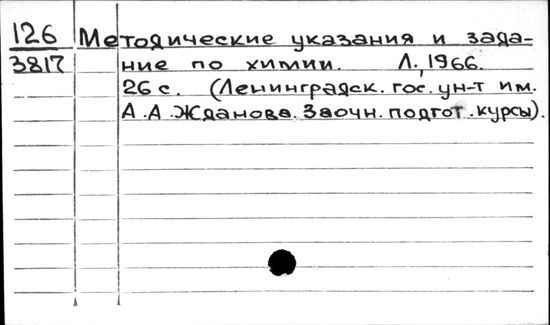 126 Методические указания и зада-
3817 ние по химии. Л., 1966.
26 с. (Ленинградск. гос. ун-т им.
А.А. Жданова. Заочн. подгот. курсы).